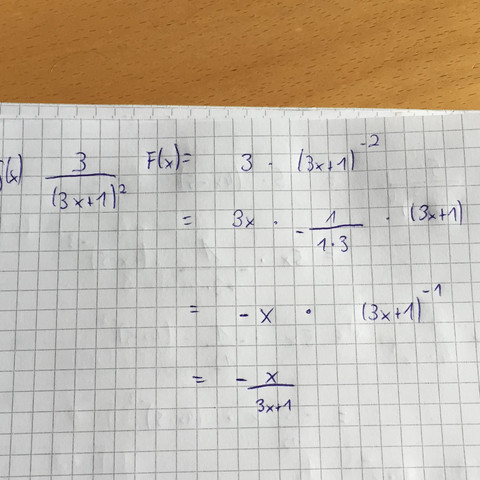 g(x) 3/(3x+1)² F(x)= 3 · (3x+1)⁻²
= 3x · -1/(1·3) · (3x+1)
= -x · (3x+1)⁻¹
= -x/(3x+1)